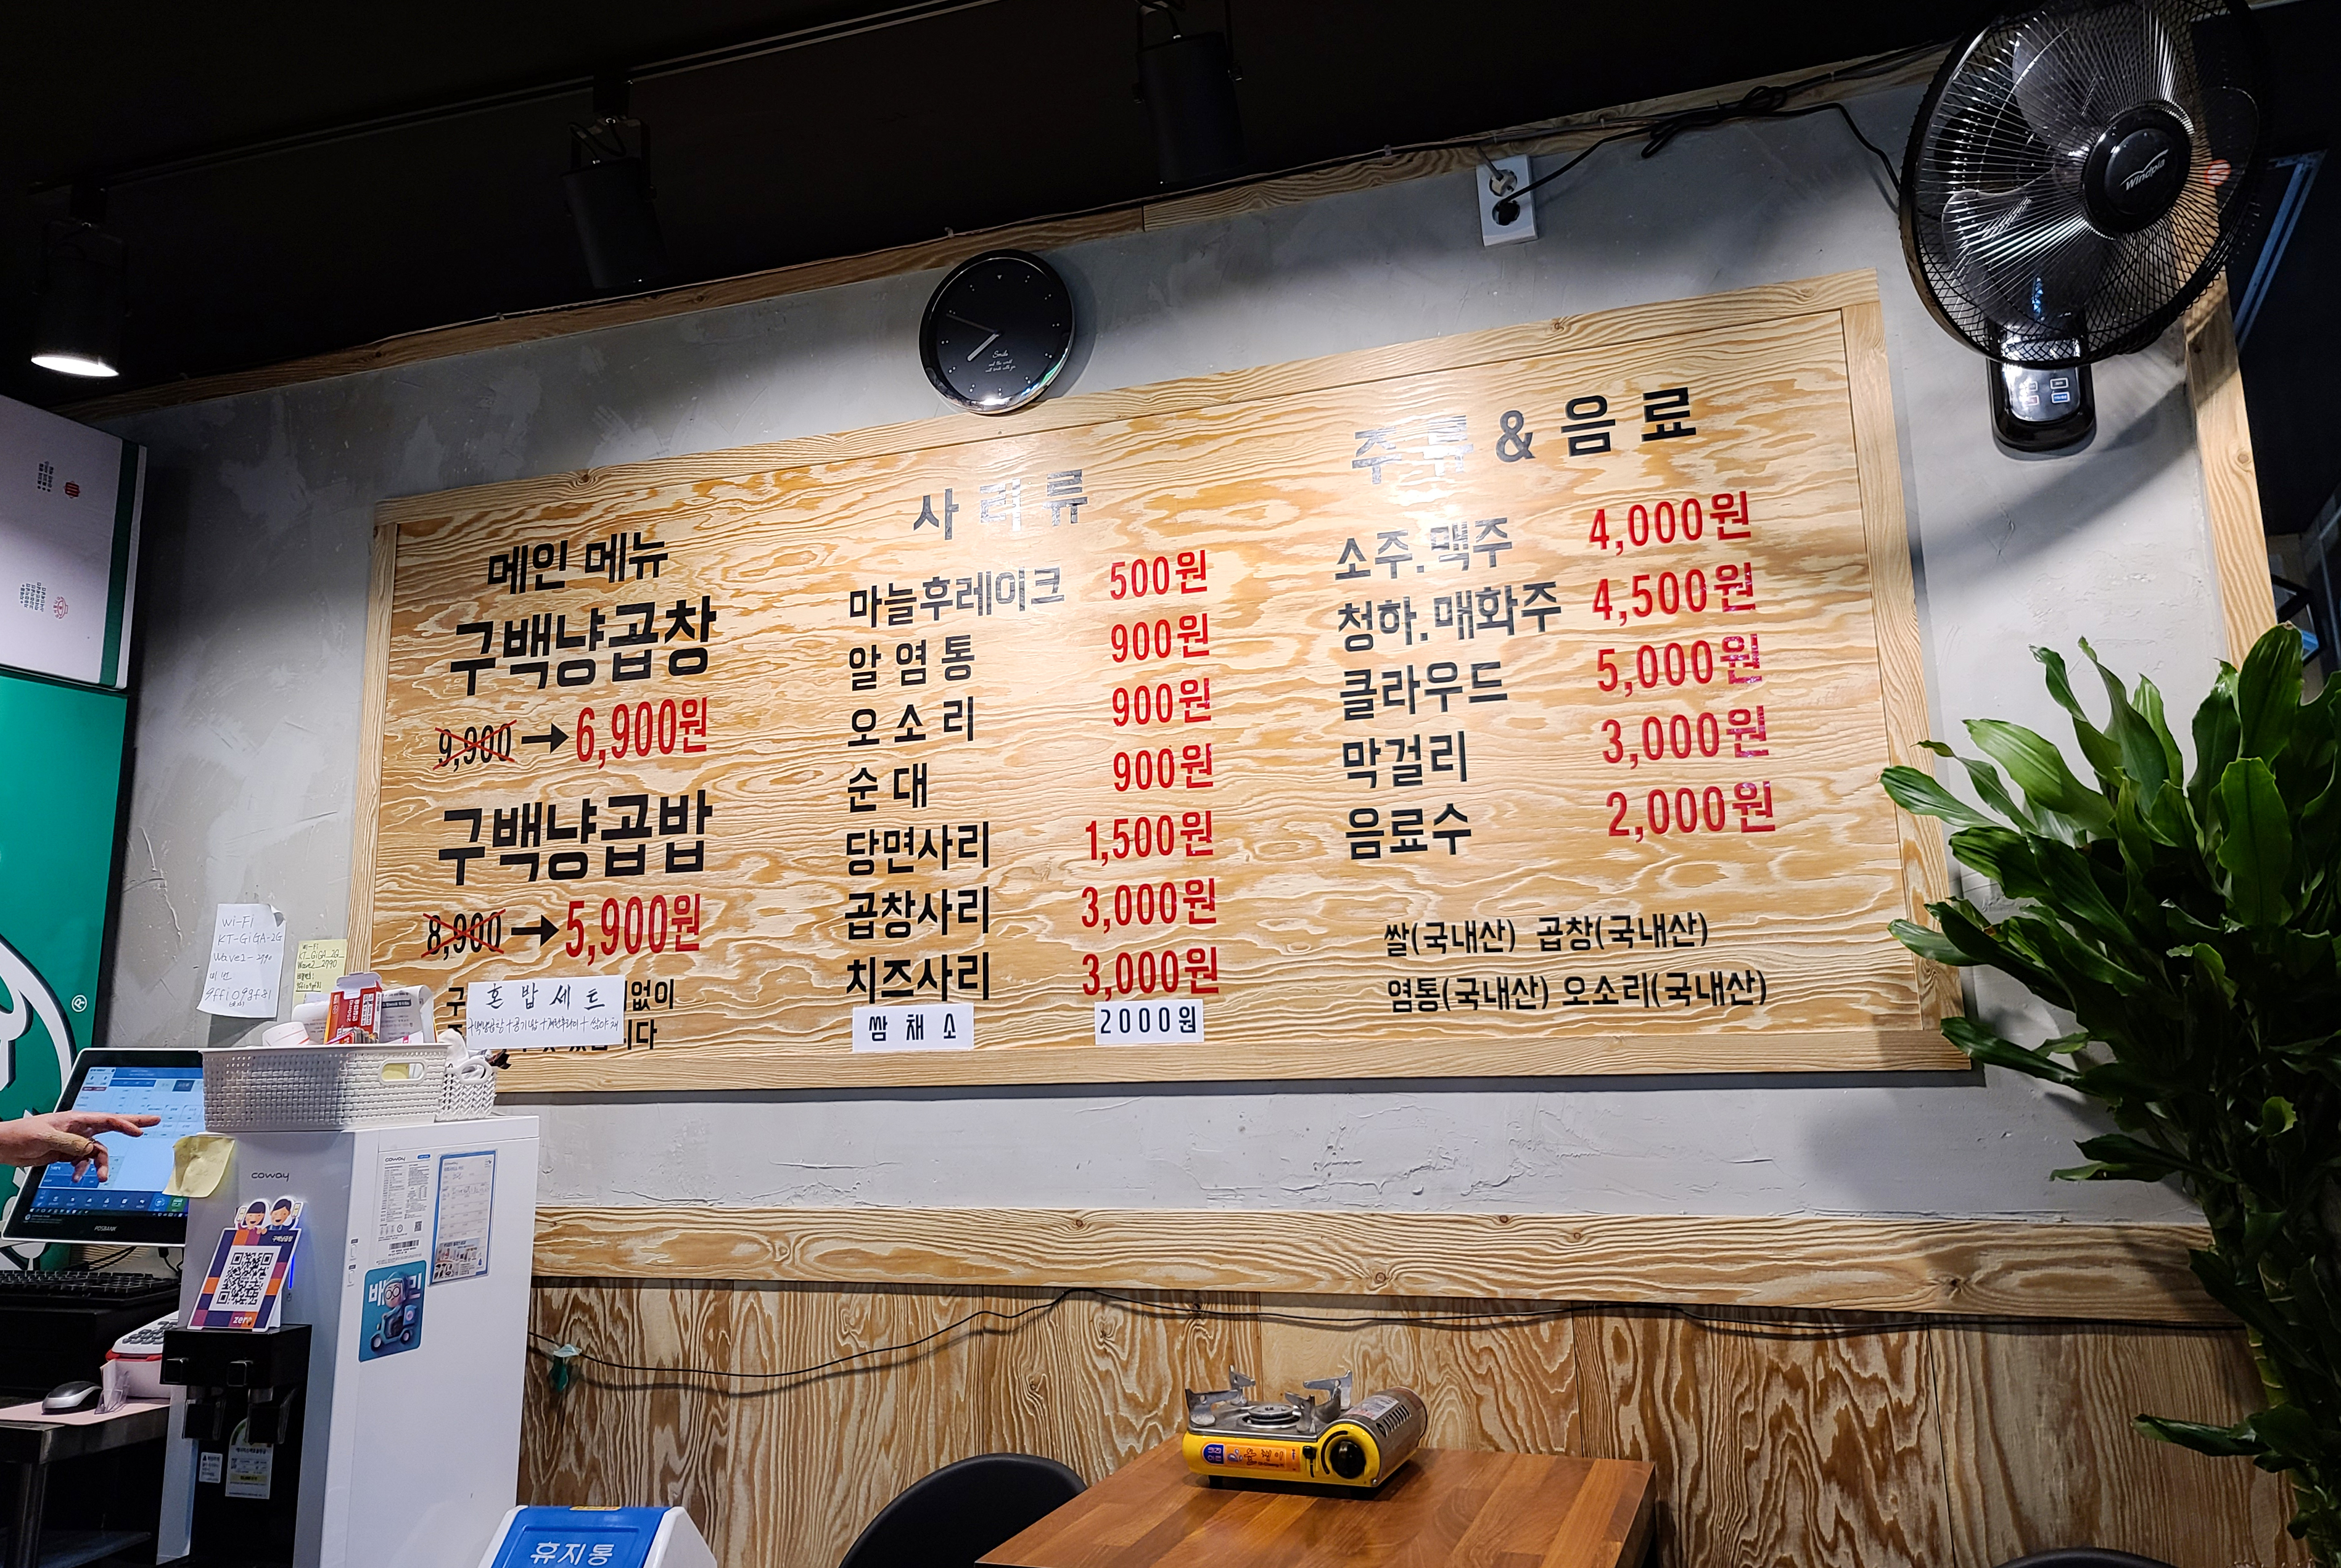 메인 메뉴
구백냥곱창
9,900 → 6,900원
구백냥곱밥
8,900 → 5,900원
혼밥세트
사리류
마늘후레이크 500원
알염통 900원
오소리 900원
순대 900원
당면사리 1,500원
곱창사리 3,000원
치즈사리 3,000원
쌈채소 2000원
주류&음료
소주.맥주 4,000원
청하.매화주 4,500원
클라우드 5,000원
막걸리 3,000원
음료수 2,000원
쌀(국내산) 곱창(국내산)
염통(국내산) 오소리(국내산)
Windpia
Smile
Wi-Fi
KT-GIGA-2G
Wave2-2790
coway
POSBANK
구백냥곱창
zero
휴지통